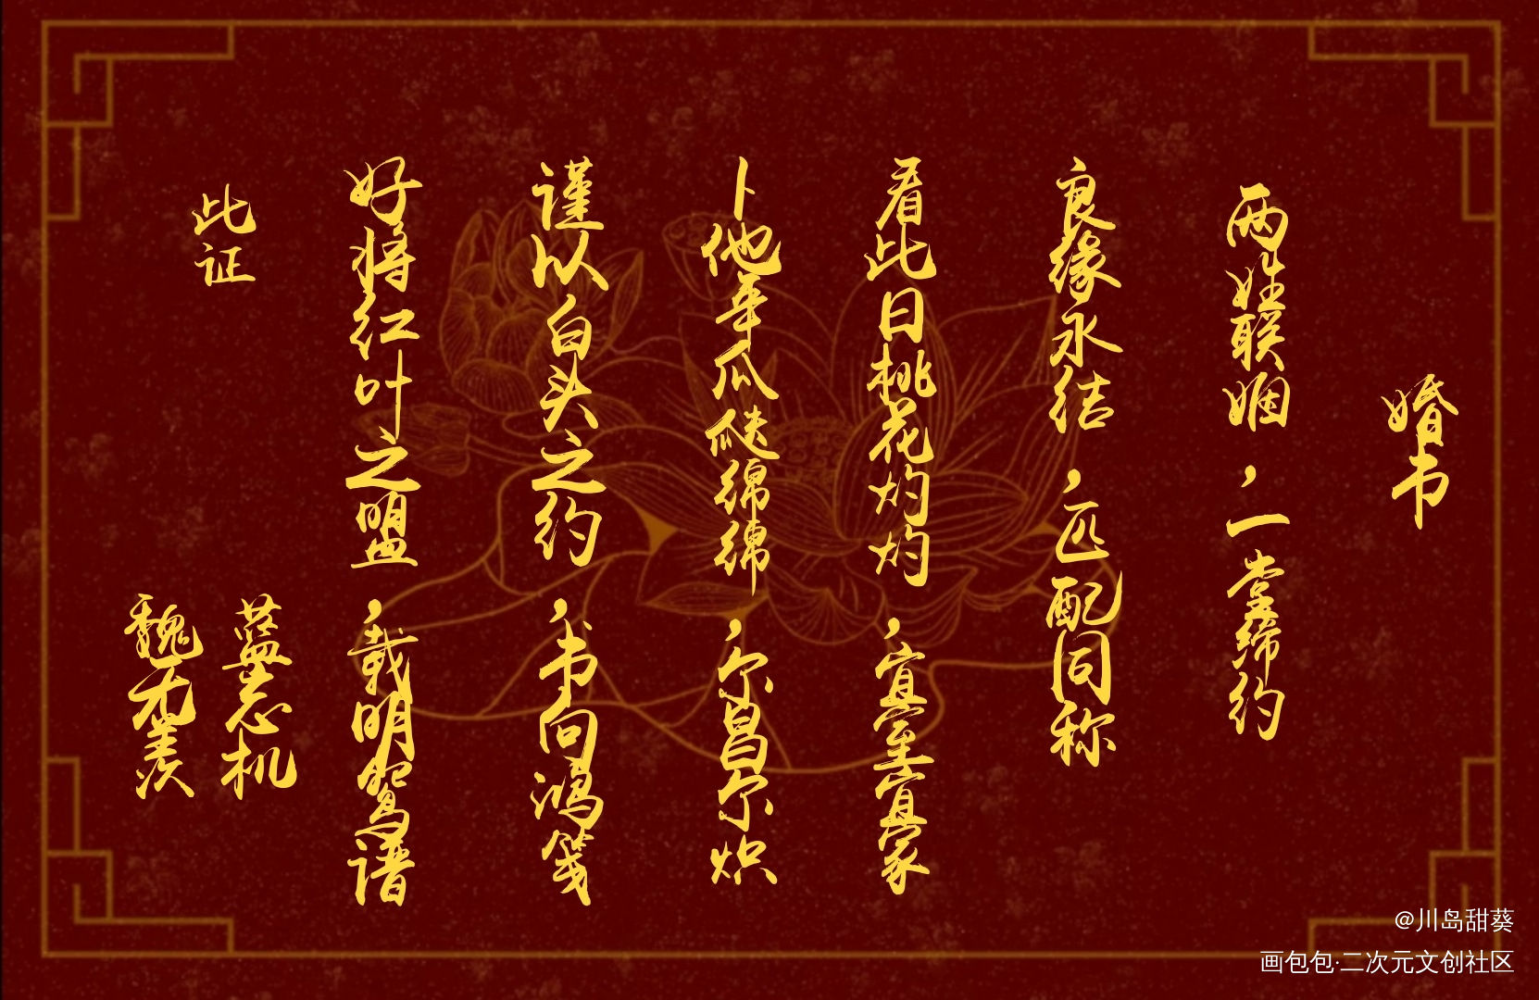 婚书
两姓联姻，一堂缔约
良缘永结，匹配同称
看此日桃花灼灼，宜室宜家
卜他年瓜瓞绵绵，尔昌尔炽
谨以白头之约，书向鸿笺
好将红叶之盟，载明鸳谱
此证
蓝忘机
魏无羡
@川岛甜葵
画包包·二次元文创社区